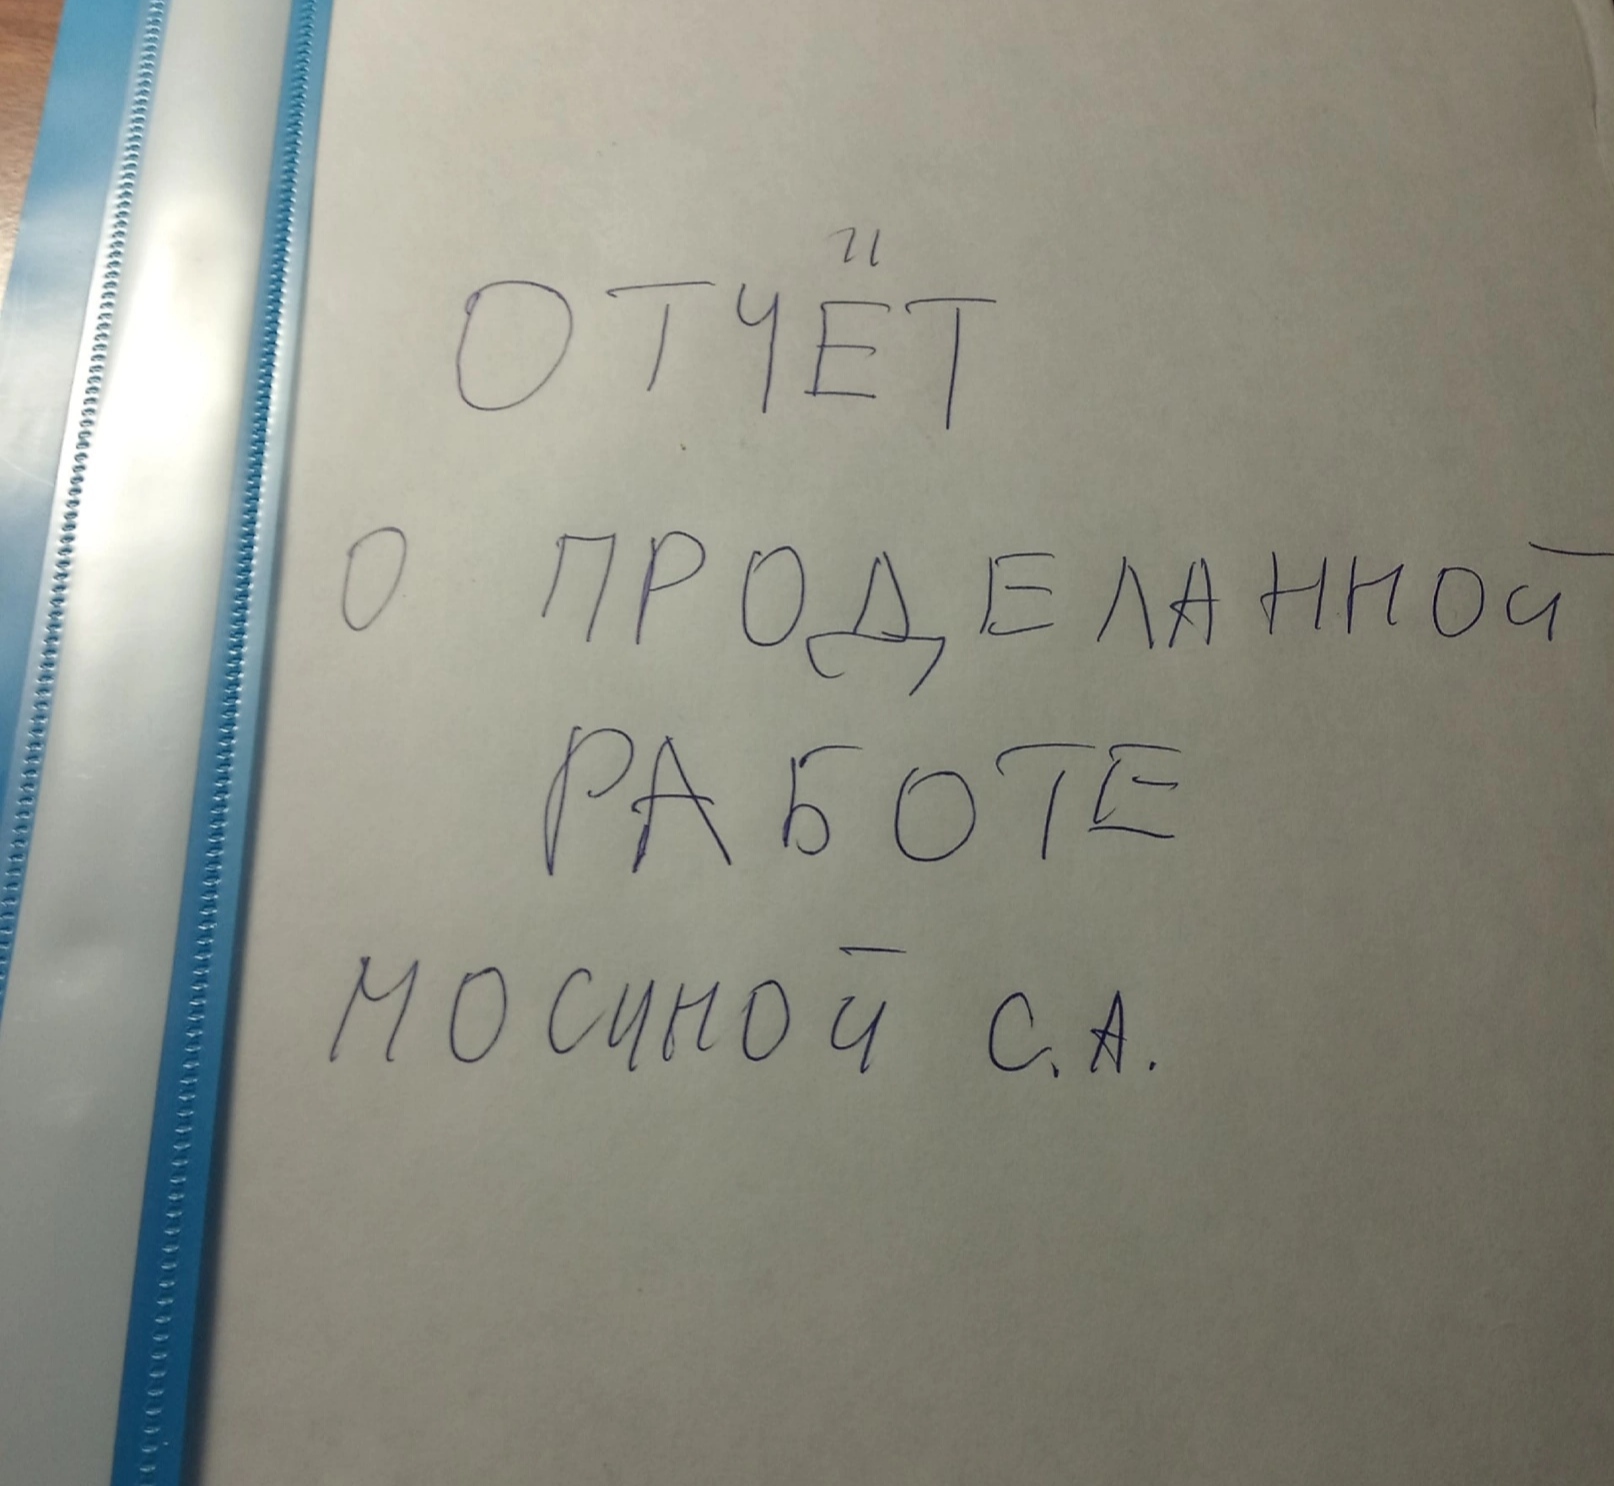 ОТЧЁТ
О ПРОДЕЛАННОЙ
РАБОТЕ
МОСИНОЙ С.А.